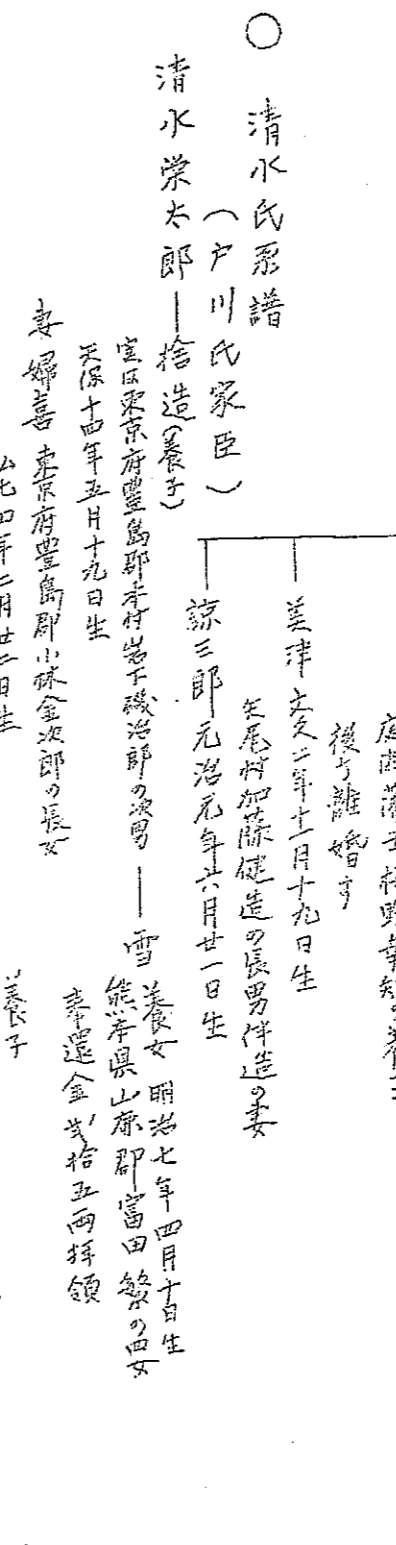 後ち離婚す
美津 文久二年十二月十九日生
矢尾村加藤健造の長男伴造の妻
諒三郎 元治元年六月廿一日生
○ 清水氏系譜
(戸川氏家臣)
清水栄太郎―捨造(養子)
実は東京府豊島郡本村岩下磯治郎の次男
天保十四年五月十九日生
妻 婦喜 東京府豊島郡小林金次郎の長女
年二月廿二日生
雪 養女 明治七年四月十日生
熊本県山鹿郡富田繁の四女
奉還金弐拾五両拝領
養子